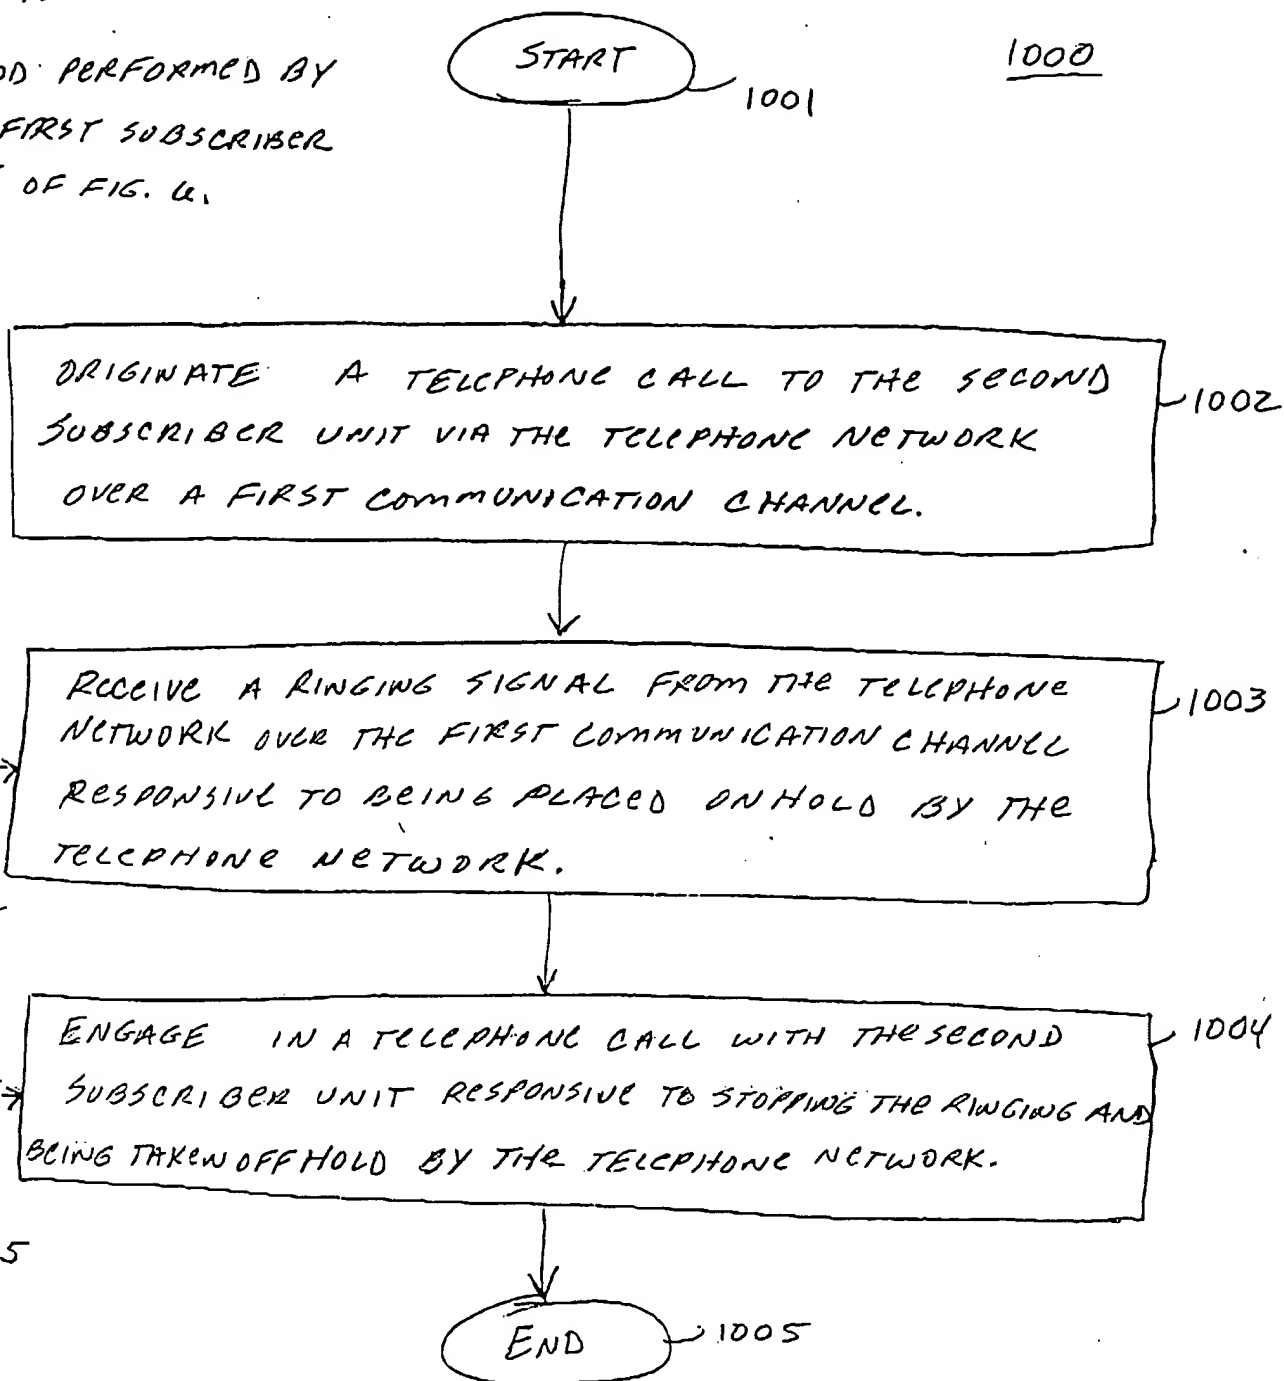 START
1000
1001
PERFORMED BY
FIRST SUBSCRIBER
OF FIG. 6.
ORIGINATE A TELEPHONE CALL TO THE SECOND
SUBSCRIBER UNIT VIA THE TELEPHONE NETWORK
OVER A FIRST COMMUNICATION CHANNEL.
1002
RECEIVE A RINGING SIGNAL FROM THE TELEPHONE
NETWORK OVER THE FIRST COMMUNICATION CHANNEL
RESPONSIVE TO BEING PLACED ON HOLD BY THE
TELEPHONE NETWORK.
1003
ENGAGE IN A TELEPHONE CALL WITH THE SECOND
SUBSCRIBER UNIT RESPONSIVE TO STOPPING THE RINGING AND
BEING TAKEN OFF HOLD BY THE TELEPHONE NETWORK.
1004
5
END
1005